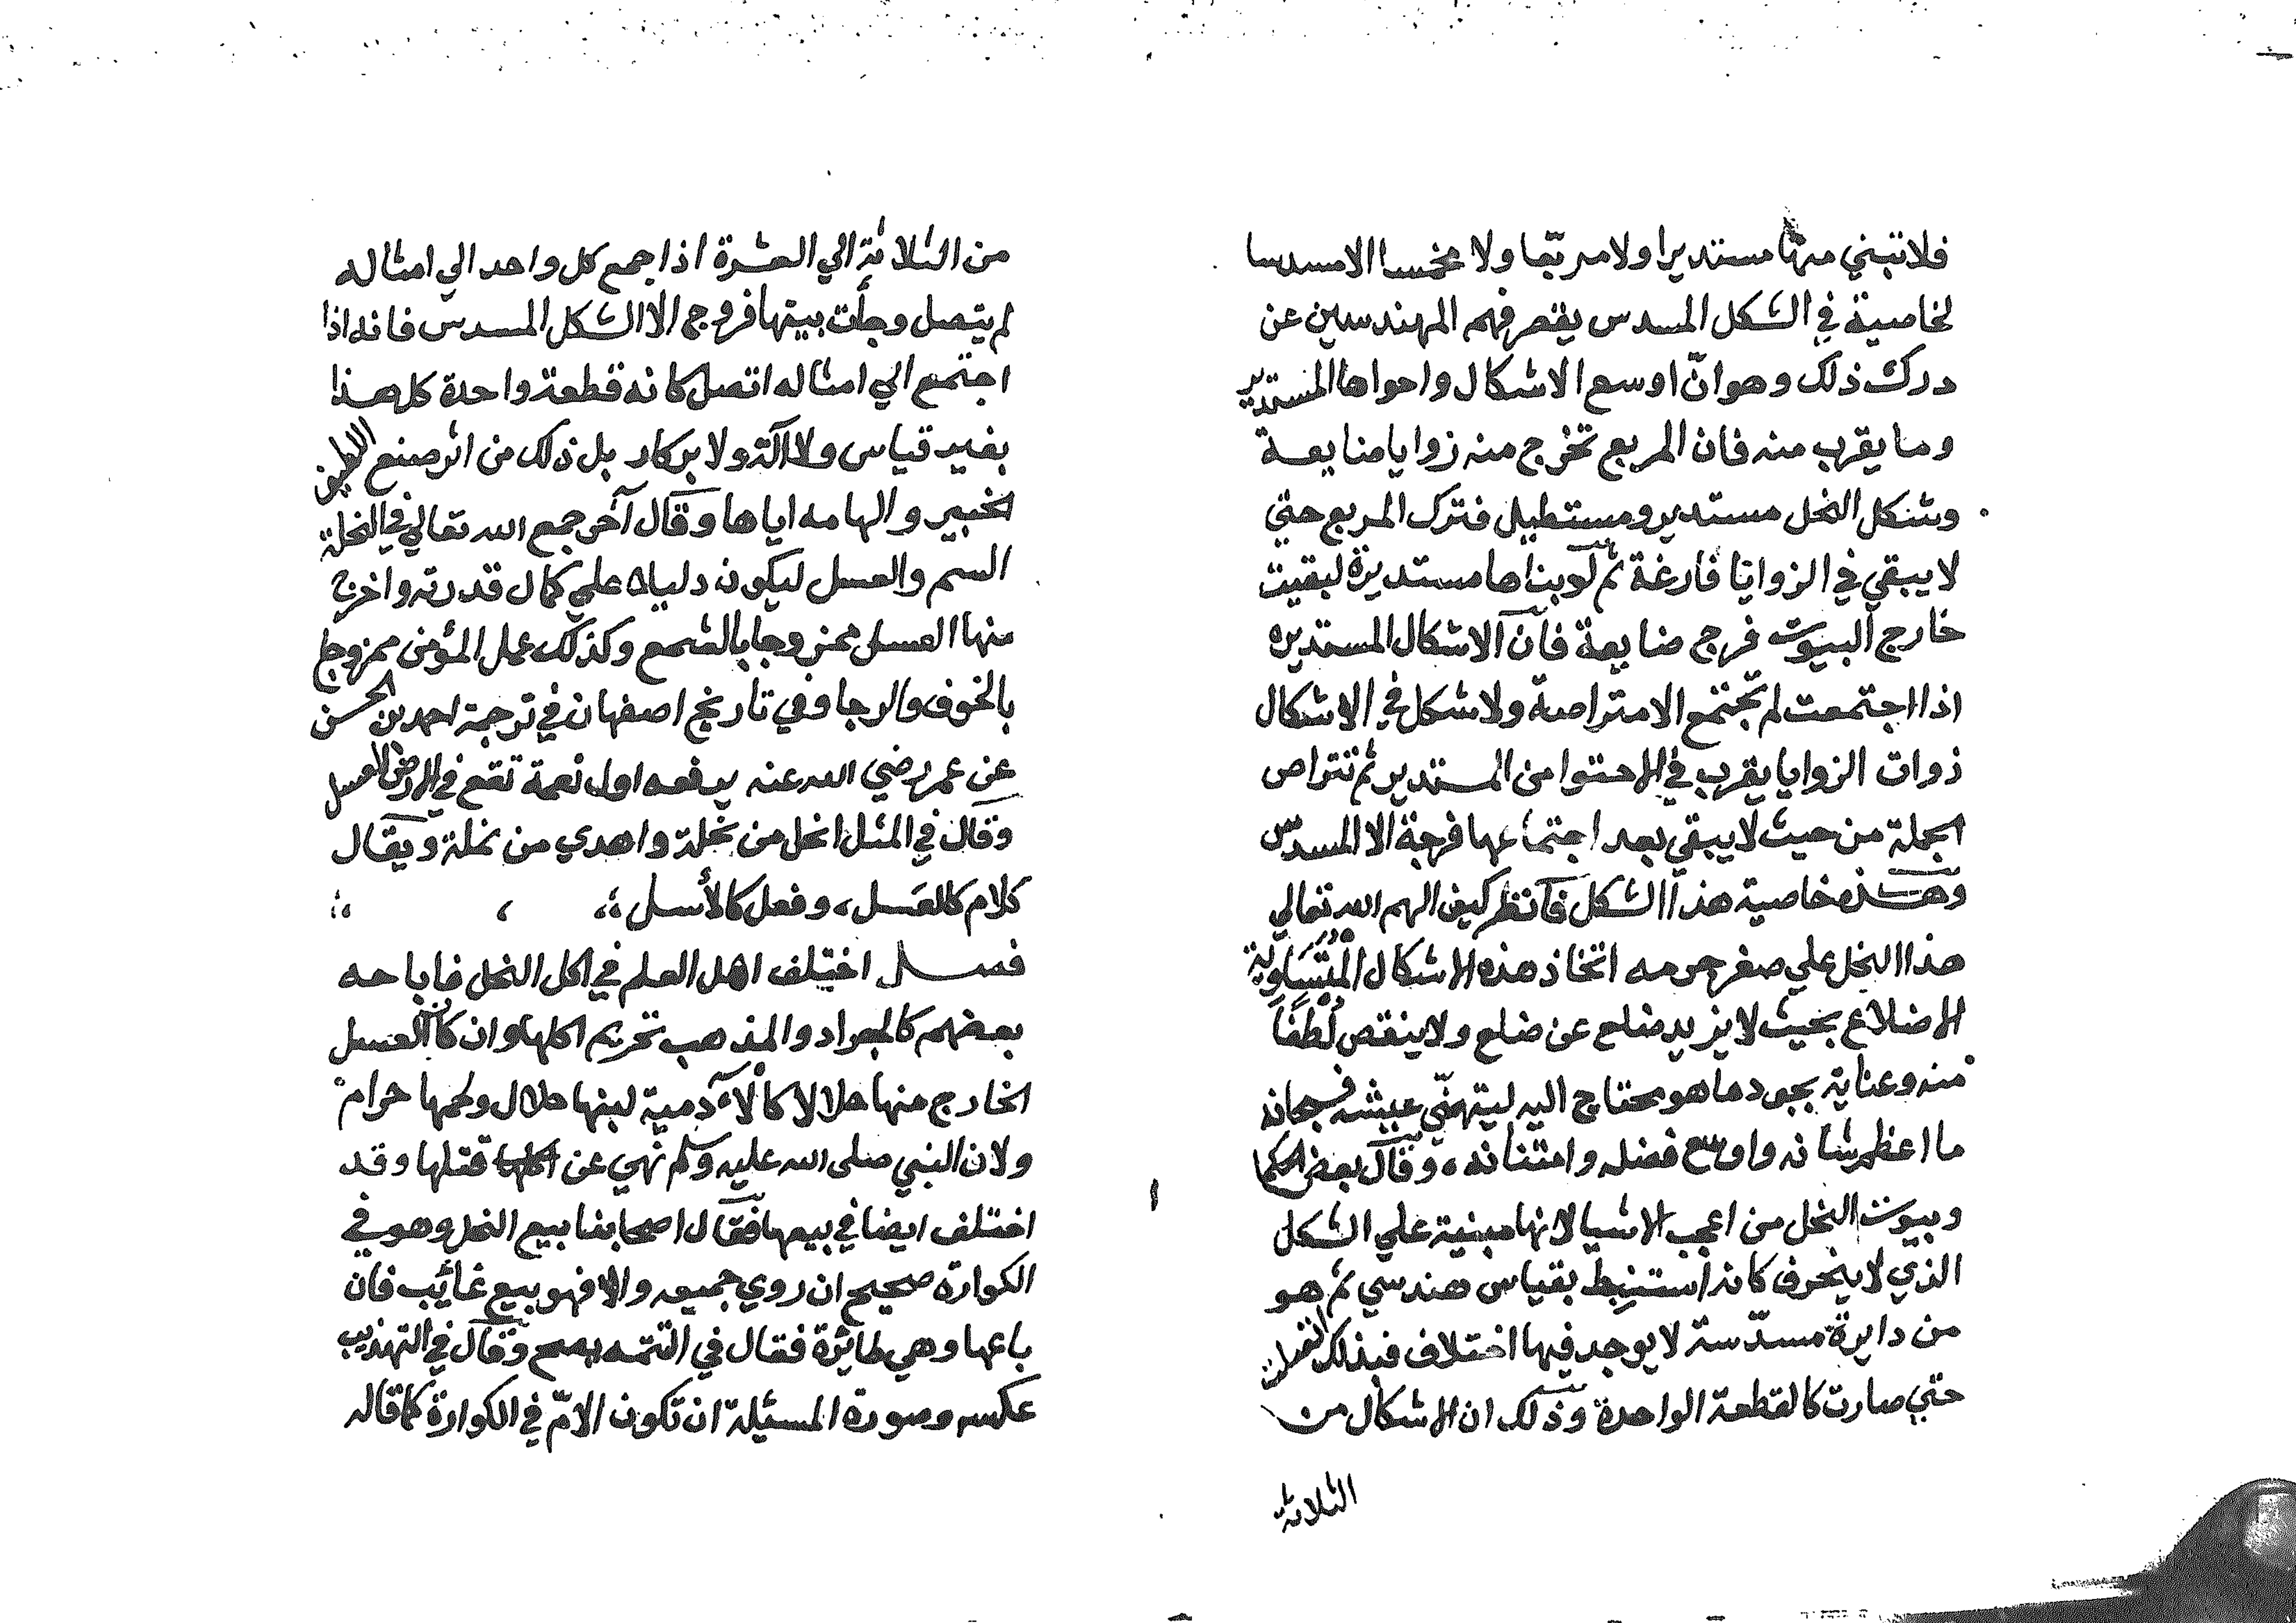 فلا تبني منها مستديرا ولا مربعا ولا مخمسا الا مسدسا
لخاصية في الشكل المسدس يقصر فهم المهندسين عن
درك ذلك وهو انّ اوسع الاشكال واحواها المستدير
وما يقرب منه فان المربع تخرج منه زوايا ضايعة
وشكل النحل مستدير ومستطيل فترك المربع حتي
لا يبقي في الزوايا فارغة ثم لو بناها مستديرة لبقيت
خارج البيوت فرج ضايعة فان الاشكال المستديره
اذا اجتمعت لم تجتمع الا متراصة ولا شكل في الاشكال
ذوات الزوايا يقرب في الاحتوا من المستدير ثم تتراص
الجملة من حيث لا يبقي بعد اجتماعها فرجة الا المسدس
وهذه خاصية هذا الشكل فانظر كيف الهم الله تعالي
هذا النحل علي صغر جرمه اتخاذ هذه الاشكال المتساوية
الاضلاع بحيث لا يزيد ضلع عن ضلع ولا ينقص لُطْفًا
منه وعناية بجود ما هو محتاج اليه ليتهنّي عيشه فسبحانه
ما اعظم شانه واوسع فضله وامتنانه ، وقال بعض الحكما
وبيوت النحل من اعجب الاشيا لانها مبنية علي الشكل
الذي لا ينحرف كانه استنبط بقياس هندسي ثم هو
من دايرة مسدّسة لا يوجد فيها اختلاف فبذلك اتصلت
حتي صارت كالقطعة الواحدة وذلك ان الاشكال من
الثلاثة
من الثلاثة الي العشرة اذا جمع كل واحد الي امثاله
لم يتصل وجأت بينها فروج الا الشكل المسدس فانه اذا
اجتمع الي امثاله اتصل كانه قطعة واحدة كل هذا
بغير قياس ولا آلة ولا بركار بل ذلك من اثر صنع اللطيف
الخبير والهامه اياها وقال آخر جمع الله تعالي في النحلة
السم والعسل ليكون دليلا علي كمال قدرته واخرج
منها العسل ممزوجا بالشمع وكذلك عمل المؤمن ممزوجا
بالخوف والرجا وفي تاريخ اصفهان في ترجمة احمد بن الحسن
عن عمر رضي الله عنه يرفعه اول نعمة تقع في الارض العسل
وقال في المثل انحل من نحلة واهدي من نحلة ويقال
كلام كالعَسل ، وفعل كالأسل ؛ ، ؛
فصل اختلف اهل العلم في اكل النحل فاباحه
بعضهم كالجراد والمذهب تحريم اكلها وان كان العسل
الخارج منها حلالا كالآدمية لبنها حلال ولحمها حرام
ولان النبي صلى الله عليه وسلم نهي عن اكلها قتلها وقد
اختلف ايضا في بيعها فقال اصحابنا بيع النحل وهو في
الكوارة صحيح ان روي جميعه والا فهو بيع غائب فان
باعها وهي طائرة فقال في التتمه يصح وقال في التهذيب
عكسه وصورة المسئيلة ان تكون الامّ في الكوارة كما قاله